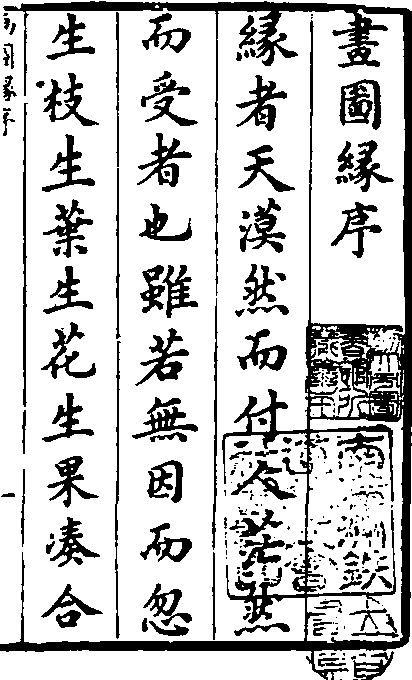 畫圖緣序
緣者天漠然而付人茫然
而受者也雖若無因而忽
生枝生葉生花生果凑合